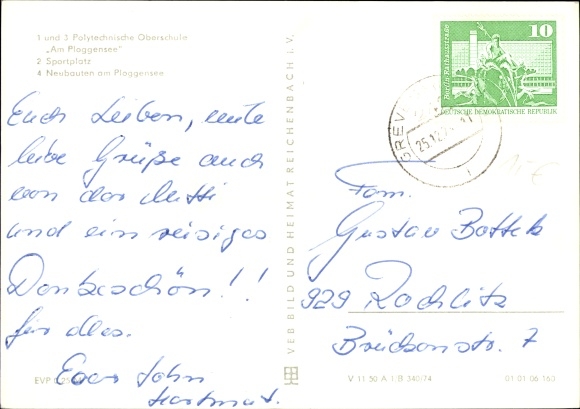 1 und 3 Polytechnische Oberschule
„Am Ploggensee"
2 Sportplatz
4 Neubauten am Ploggensee
Euch Lieben, liebe
Grüße auch
von der Mutti
und ein riesiges
Dankeschön!!
für alles.
Euer Sohn
Hartmut.
EVP
VEB BILD UND HEIMAT REICHENBACH i. V.
V 11 50 A 1/B 340/74
01 01 06 163
10
Berlin, Rathausstraße
DEUTSCHE DEMOKRATISCHE REPUBLIK
GREV
25.12.
Fam.
Gustav
929 Rochlitz
7